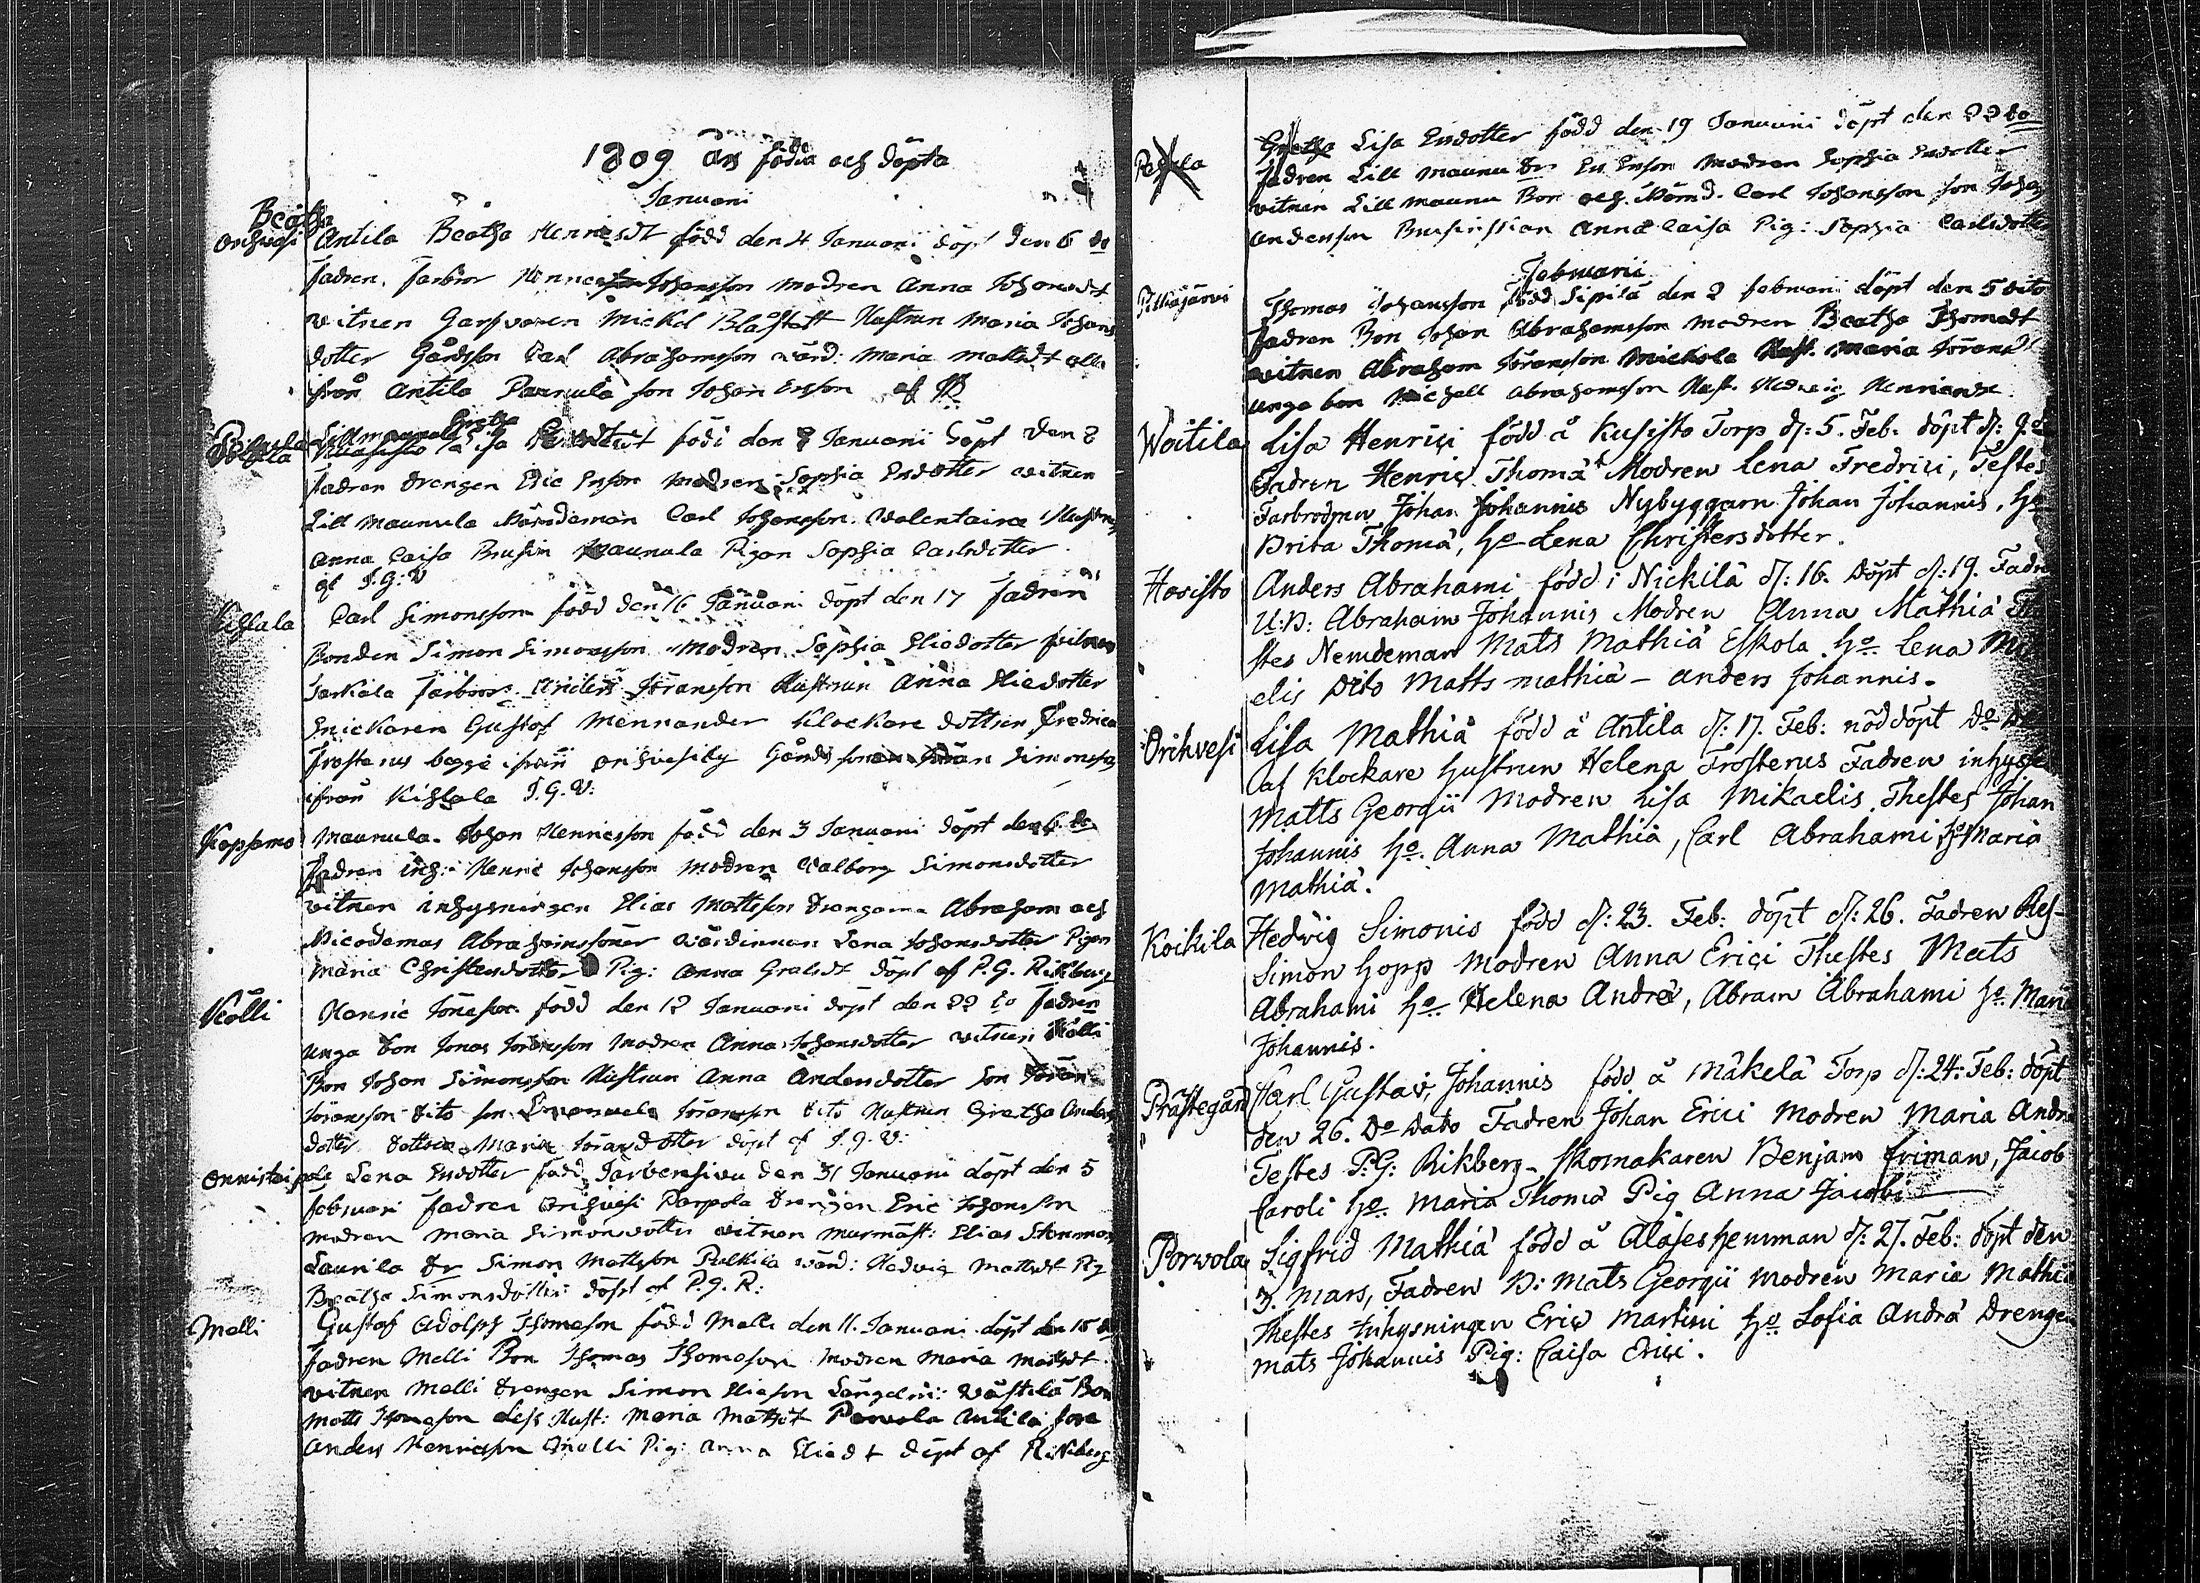 1809 års födda och döpta
Januarii
Beatha
Orihvesi Antila Beatha Henricsdt född den 4 Januarii döpt den 6 do
fadren farbror Henric Johansson modren Anna Johansdt
vitnen Garfvaren Mickel Blåfjält Hustrun Maria Johans
dotter Gårdsson Carl Abrahamsson värd: Maria Mattsdt alla
från Antila Parnula son Johan Ersson af
Lillmaunula Gretha Lisa född den Januarii döpt den 8
fadren drengen Eric Ersson modren Sophia Ersdotter vitnen
Lill Maunula Nämdeman Carl Johansson Hustrun
Anna Caisa Brusin Maunula Pigan Sophia Carlsdotter
af J.G:V
Kihlala Carl Simonsson född den 16 Januarii döpt den 17 fadren
Bonden Simon Simonsson modren Sophia Eliædotter
Farbror Anders Göransson Hustrun Anna Eliedotter
Gustaf Mennander Klockare dottren Fredrica
Frosterus begge ifrån Orihvesiby Gårds sonen Göran Simonsson
ifrån Kihlala J.G.V:
Koppsamo Maunula Johan Henricsson född den 3 Januarii döpt den 6 do
fadren inh: Henric Johansson modren Valborg Simonsdotter
vitnen inhysningen Elias Mattsson drengarne Abraham och
Nicodemus Abrahamssöner värdinnan Lena Johansdotter Pigan
Maria Christersdotter Pig: Anna döpt af P.G. Rikberg
Kölli Henric Jönsson född den 12 Januarii döpt den 22 to fadren
unga bon Jonas Göransson modren Anna Johansdotter vitnen Kölli
Bon Johan Simonsson Hustrun Anna Andersdotter son Göran
Göransson dito son Emanuel Göransson dito Hustrun Gretha Anders
dotter dottren Maria Göransdotter döpt af J.G.V:
Onnistaipale Lena Ersdotter född Järvensivu den 31 Januarii döpt den 5
februari fadren Orihvesi Parpola drengen Eric Johansson
modren Maria Simonsdotter vitnen murmäst: Elias Stenman
Laurila dr Simon Mattsson Pulkkila värd: Hedvig Mattsdt Pig
Beatha Simonsdotter döpt af P.G.R:
Melli Gustaf Adolph Thomasson född Melli den 11. Januarii döpt den 15 do
fadren Melli Bon Thomas Thomasson modren Maria Mattsdt
vitnen Melli drengen Simon Eliasson Längelm: Västilä Bon
Matts Thomasson dess Hust: Maria Mattsdt Porvola Antila son
Anders Henricsson Melli Pig: Anna Eliædt döpt af Rikberg
Gretha Lisa Ersdotter född den 19 Januarii döpt den 22 to
fadren Lill Maunu dr Er Ersson modren Sophia Ersdotter
vitnen Lill Maunu Bon och Nämd. Carl Johansson son Johan
Andersson Brusinskian Anna Caisa Pig: Sophia Carlsdotter
Februarii
Pitkäjärvi Thomas Johansson född Sipilä den 2 februari döpt den 5 dito
fadren Bon Johan Abrahamsson modren Beatha Thomedt
vitnen Abraham Göransson Mickola Hust. Maria Göransdt
unga bon Michell Abrahamsson Hust. Hedwig Henricsdt
Woitila Lisa Henrici född å Kusisto Torp d: 5. Feb. döpt d: 9. d
Fadren Henric Thomæ Modren Lena Fredrici, Testes
Farbrodren Johan Johannis Nybyggarn Johan Johannis, Ho
Brita Thomæ, Ho Lena Christersdotter.
Hovisto Anders Abrahami född i Nickilä d: 16. Döpt d: 19. Fadr
U:B: Abraham Johannis Modren Anna Mathiæ Te
stes Nemdeman Mats Mathiæ Eskola Ho Lena Mi
elis Dito Matts Mathiæ - Anders Johannis.
Orihvesi Lisa Mathiæ född å Antila d: 17. Feb: nöddöpt Do
af Klockare Hustrun Helena Frosterus Fadren inhyse
Matts Georgii Modren Lisa Mikaelis Thestes Johan
Johannis Ho. Anna Mathiæ, Carl Abrahami Ho Maria
Mathiæ.
Koikila Hedvig Simonis född d: 23. Feb: döpt d: 26. Fadren Res-
Simon Hopp Modren Anna Erici Thestes Mats
Abrahami Ho Helena Andreæ, Abram Abrahami Ho Maria
Johannis.
Prästegård Karl Gustav Johannis född å Mäkelä Torp d: 24: Feb: döpt
den 26. Do Dato Fadren Johan Erici Modren Maria Andr
Testes P:G: Rikberg - Skomakaren Benjam Friman, Jacob
Caroli Ho Maria Thomæ Pig Anna Jacobi
Porvola Sigfrid Mathiæ född å Alajeshemman d: 27. Feb: döpt den
3. Mars, Fadren B: Mats Georgii Modren Maria Mathiæ
Thestes Inhysningen Eric Martini Ho Sofia Andræ Drengen
Mats Johannis Pig: Caisa Erici.